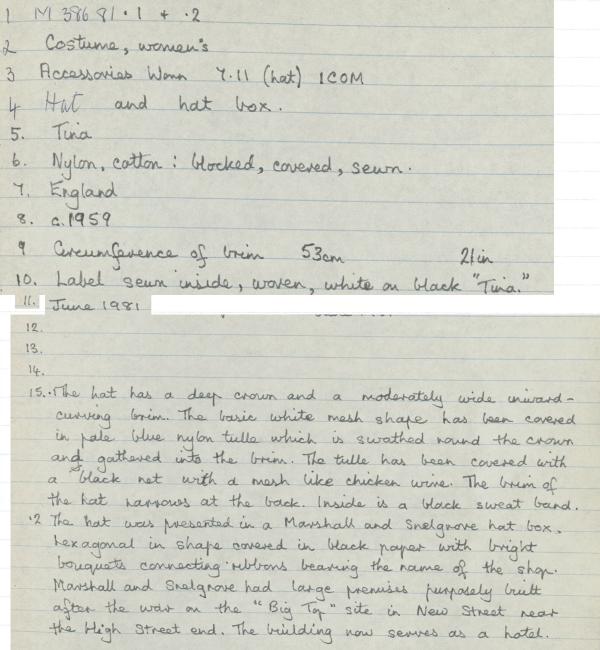 1 M 38681·1 + ·2
2 Costume, women's
3 Accessories Worn 7.11 (hat) ICOM
4 Hat and hat box.
5. Tina
6. Nylon, cotton : blocked, covered, sewn.
7. England
8. c.1959
9 Circumference of brim 53cm 21in
10. Label sewn inside, woven, white on black "Tina."
11. June 1981
12.
13.
14.
15. ·1 The hat has a deep crown and a moderately wide inward-
curving brim. The basic white mesh shape has been covered
in pale blue nylon tulle which is swathed round the crown
and gathered into the brim. The tulle has been covered with
a black net with a mesh like chicken wire. The brim of
the hat narrows at the back. Inside is a black sweat band.
·2 The hat was presented in a Marshall and Snelgrove hat box.
hexagonal in shape covered in black paper with bright
bouquets connecting ribbons bearing the name of the shop.
Marshall and Snelgrove had large premises purposely built
after the war on the "Big Top" site in New Street near
the High Street end. The building now serves as a hotel.